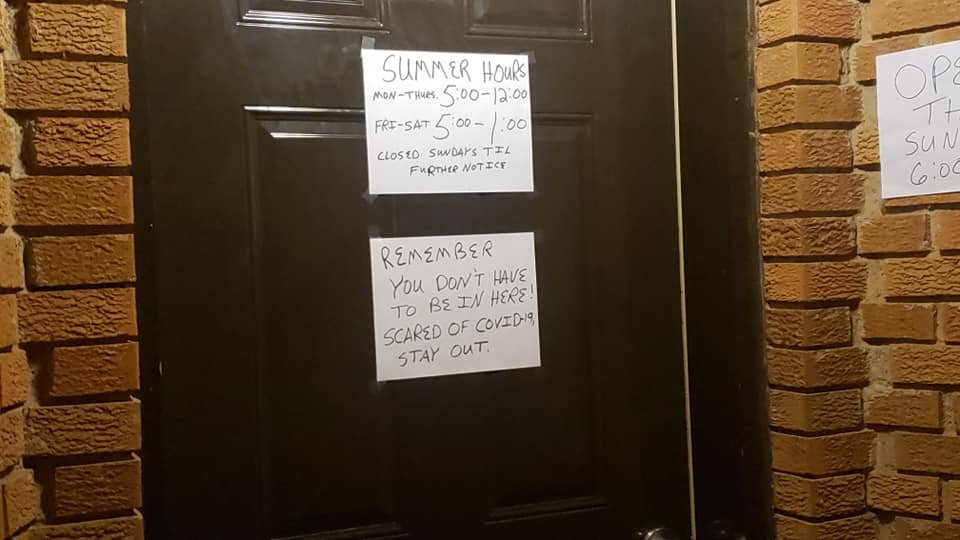 SUMMER HOURS
MON-THURS. 5:00-12:00
FRI-SAT 5:00-1:00
CLOSED SUNDAYS TIL
FURTHER NOTICE
REMEMBER
YOU DON'T HAVE
TO BE IN HERE!
SCARED OF COVID-19,
STAY OUT.
OPE
TH
SUN
6:00